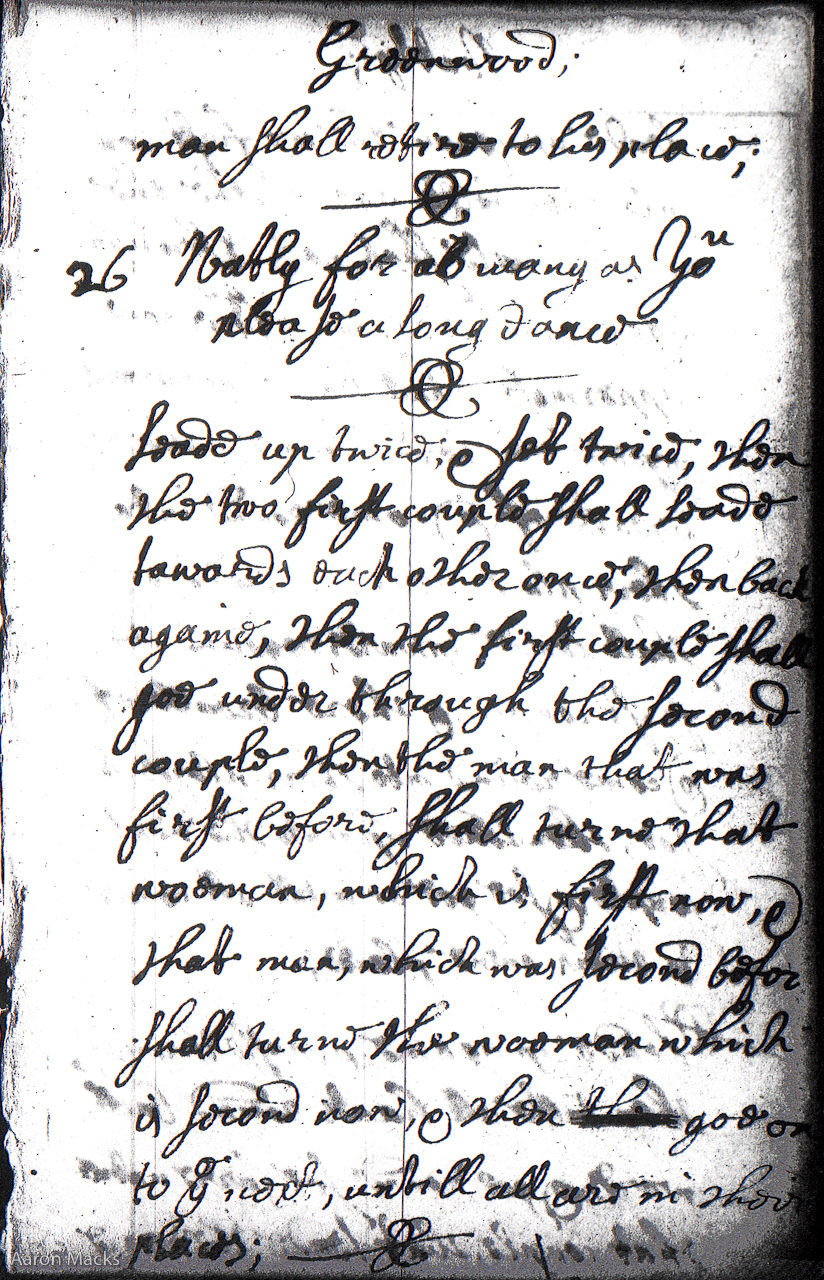 Greenwood;
man shall retire to his place;
26 Natly for as many as Yoᵘ
please a long dance
Leade up twice, & set twice, then
the two first couple shall leade
towards each other once, then back
againe, then the first couple shall
goe under through the second
couple, then the man that was
first before, shall turne that
wooman, which is first now, &
that man, which was second befor
shall turne the wooman which
is second now, & then the goe on
to yᵉ next, untill all are in their
places;
Aaron Macks